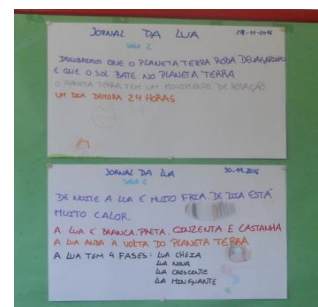 JORNAL DA LUA
SALA 2
DESCOBRIMOS QUE O PLANETA TERRA RODA DEVAGARINHO
E QUE O SOL BATE NO PLANETA TERRA
O PLANETA TERRA TEM UM MOVIMENTO DE ROTAÇÃO
UM DIA DEMORA 24 HORAS
JORNAL DA LUA 30-11-2016
SALA 2
DE NOITE A LUA É MUITO FRIA. DE DIA ESTÁ
MUITO CALOR.
A LUA É BRANCA, PRETA, CINZENTA E CASTANHA
A LUA ANDA À VOLTA DO PLANETA TERRA
A LUA TEM 4 FASES: LUA CHEIA
LUA NOVA
LUA CRESCENTE
LUA MINGUANTE